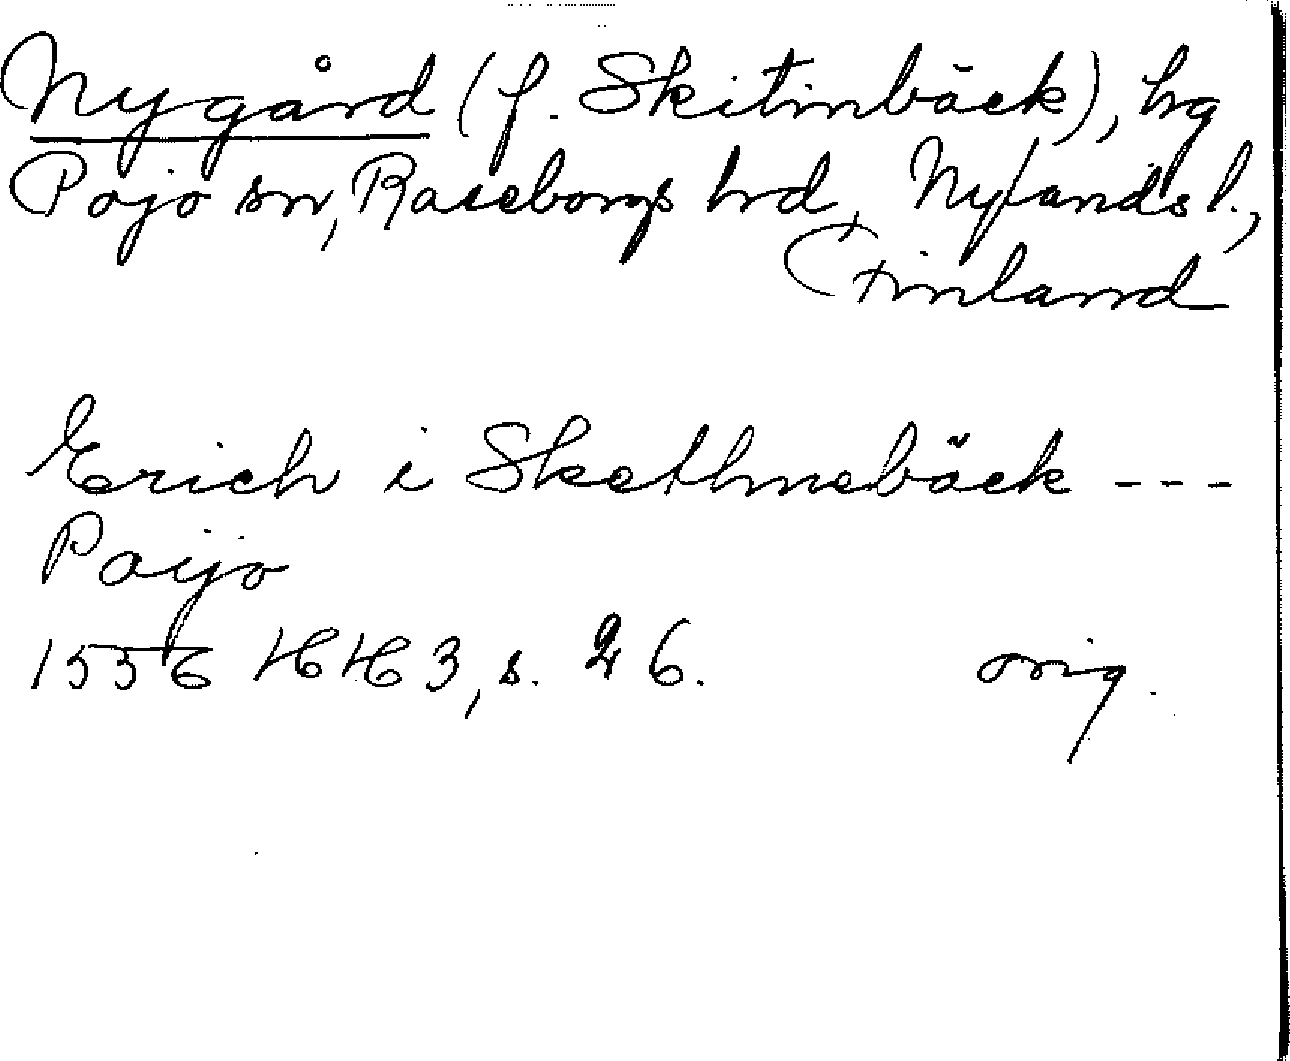 Nygård (f. Skitinbäck), hg
Pojo sn, Raseborgs hrd, Nylands l.,
Finland
Erich i Skethnebäck ---
Poijo
1556 HH 3, s. 26.
orig.